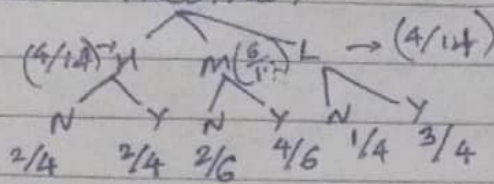 (4/14) H M (6/14) L → (4/14)
N Y N Y N Y
2/4 2/4 2/6 4/6 1/4 3/4